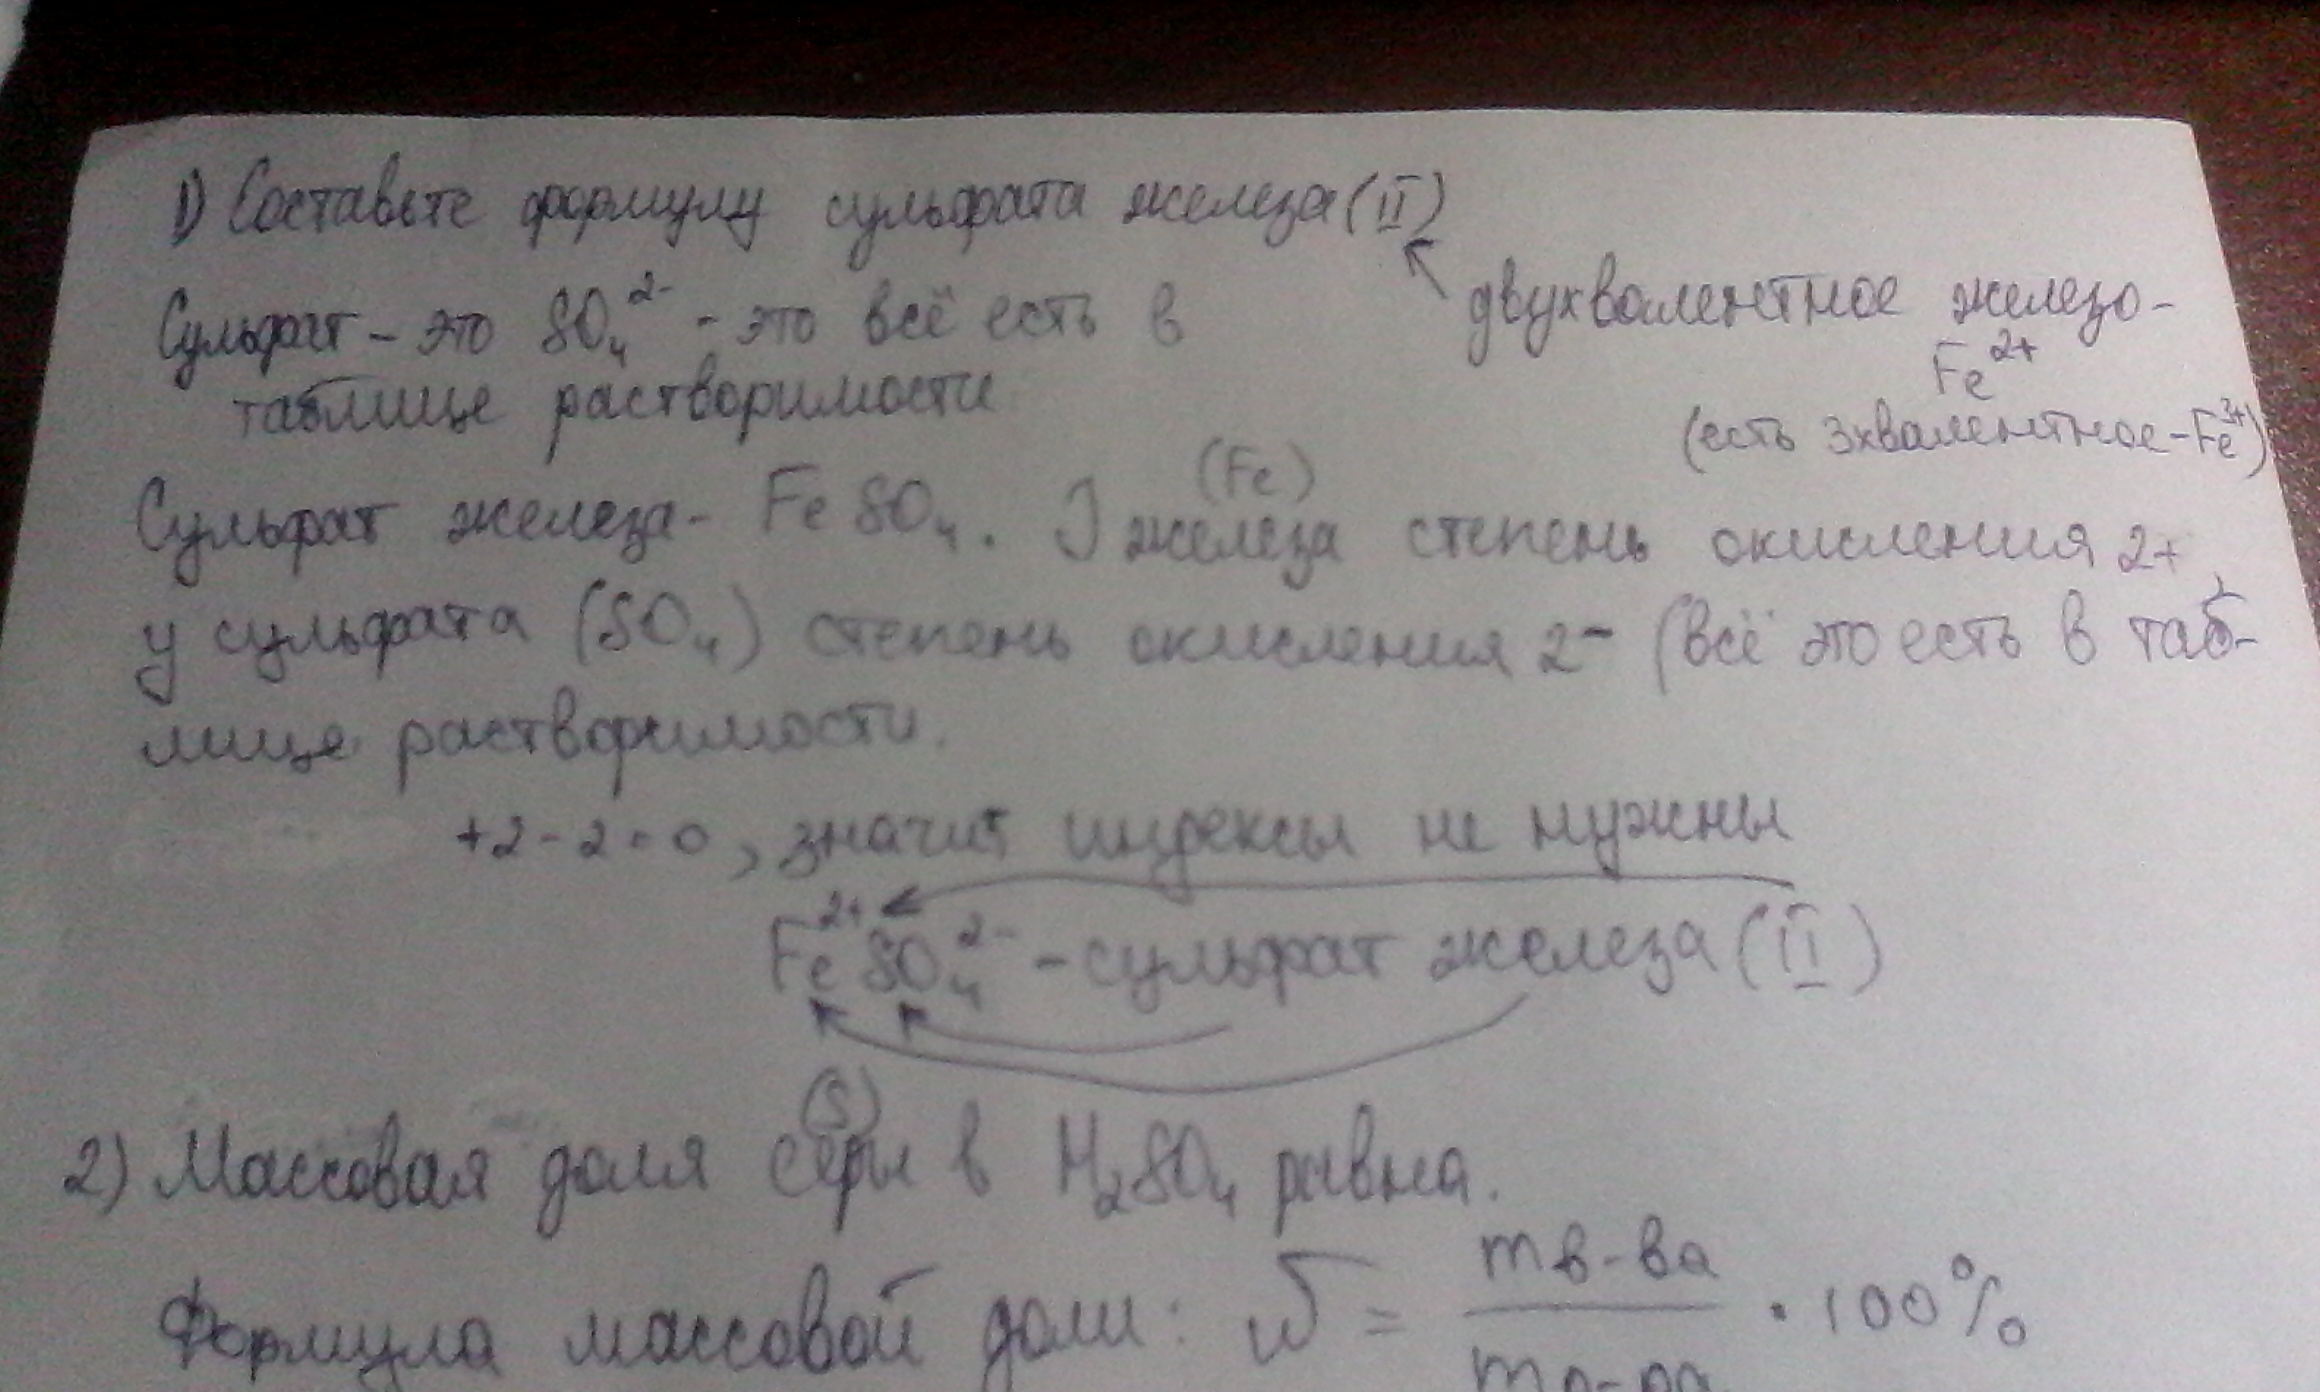 1) Составьте формулу сульфата железа (II)
Сульфат - это SO₄²⁻ - это всё есть в
таблице растворимости
двухвалентное железо -
Fe²⁺
(есть 3хвалентное - Fe³⁺)
(Fe)
Сульфат железа - FeSO₄. У железа степень окисления 2+,
у сульфата (SO₄) степень окисления 2- (всё это есть в таб-
лице растворимости.
+2-2=0, значит индексы не нужны
Fe²⁺SO₄²⁻ - сульфат железа (II)
(S)
2) Массовая доля серы в H₂SO₄ равна.
Формула массовой доли: w = mв-ва
/ mр-ра · 100%